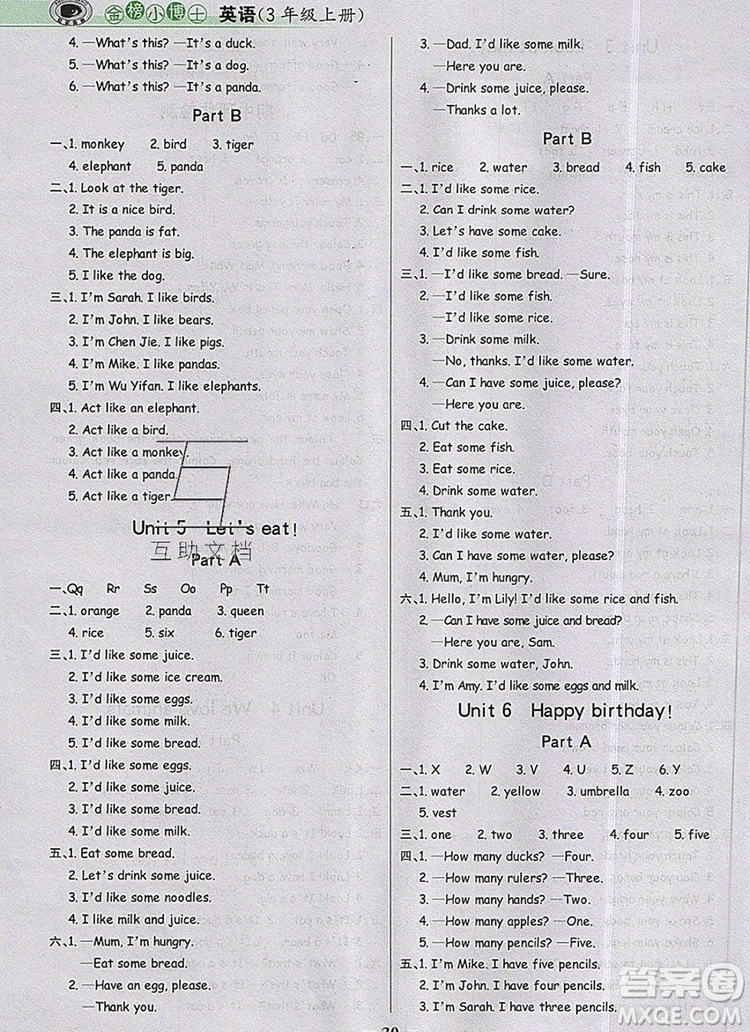 金榜小博士 英语(3年级上册)
4. —What's this? —It's a duck.
5. —What's this? —It's a dog.
6. —What's this? —It's a panda.
Part B
一、1. monkey 2. bird 3. tiger
4. elephant 5. panda
二、1. Look at the tiger.
2. It is a nice bird.
3. The panda is fat.
4. The elephant is big.
5. I like the dog.
三、1. I'm Sarah. I like birds.
2. I'm John. I like bears.
3. I'm Chen Jie. I like pigs.
4. I'm Mike. I like pandas.
5. I'm Wu Yifan. I like monkeys.
四、1. Act like an elephant.
2. Act like a bird.
3. Act like a monkey.
4. Act like a panda.
5. Act like a tiger.
Unit 5 Let's eat!
互助文档
Part A
一、Qq Rr Ss Oo Pp Tt
二、1. orange 2. panda 3. queen
4. rice 5. six 6. tiger
三、1. I'd like some juice.
2. I'd like some ice cream.
3. I'd like some eggs.
4. I'd like some milk.
5. I'd like some bread.
四、1. I'd like some eggs.
2. I'd like some juice.
3. I'd like some bread.
4. I'd like some milk.
五、1. Eat some bread.
2. Let's drink some juice.
3. I'd like some noodles.
4. Drink some milk.
六、1. —Mum, I'm hungry.
—Eat some bread.
2. —Have an egg, please.
—Thank you.
3. —Dad. I'd like some milk.
—Here you are.
4. —Drink some juice, please.
—Thanks a lot.
Part B
一、1. rice 2. water 3. bread 4. fish 5. cake
二、1. I'd like some rice.
2. Can I drink some water?
3. Let's have some cake.
4. I'd like some fish.
三、1. —I'd like some bread. —Sure.
2. —I'd like some fish.
—I'd like some rice.
3. —Drink some milk.
—No, thanks. I'd like some water.
4. —Can I have some juice, please?
—Here you are.
四、1. Cut the cake.
2. Eat some fish.
3. Eat some rice.
4. Drink some water.
五、1. Thank you.
2. I'd like some water.
3. I'd like some juice.
4. Mum, I'm hungry.
六、1. Hello, I'm Lily! I'd like some rice and fish.
2. —Can I have some juice and bread?
—Here you are, Sam.
3. —Drink some water, John.
4. I'm Amy. I'd like some eggs and milk.
Unit 6 Happy birthday!
Part A
一、1. X 2. W 3. V 4. U 5. Z 6. Y
二、1. water 2. yellow 3. umbrella 4. zoo
5. vest
三、1. one 2. two 3. three 4. four 5. five
四、1. —How many ducks? —Four.
2. —How many rulers? —Three.
3. —How many hands? —Two.
4. —How many apples? —One.
5. —How many pencils? —Five.
五、1. I'm Mike. I have five pencils.
2. I'm John. I have four pencils.
3. I'm Sarah. I have three pencils.
答案圈
MXQE.COM